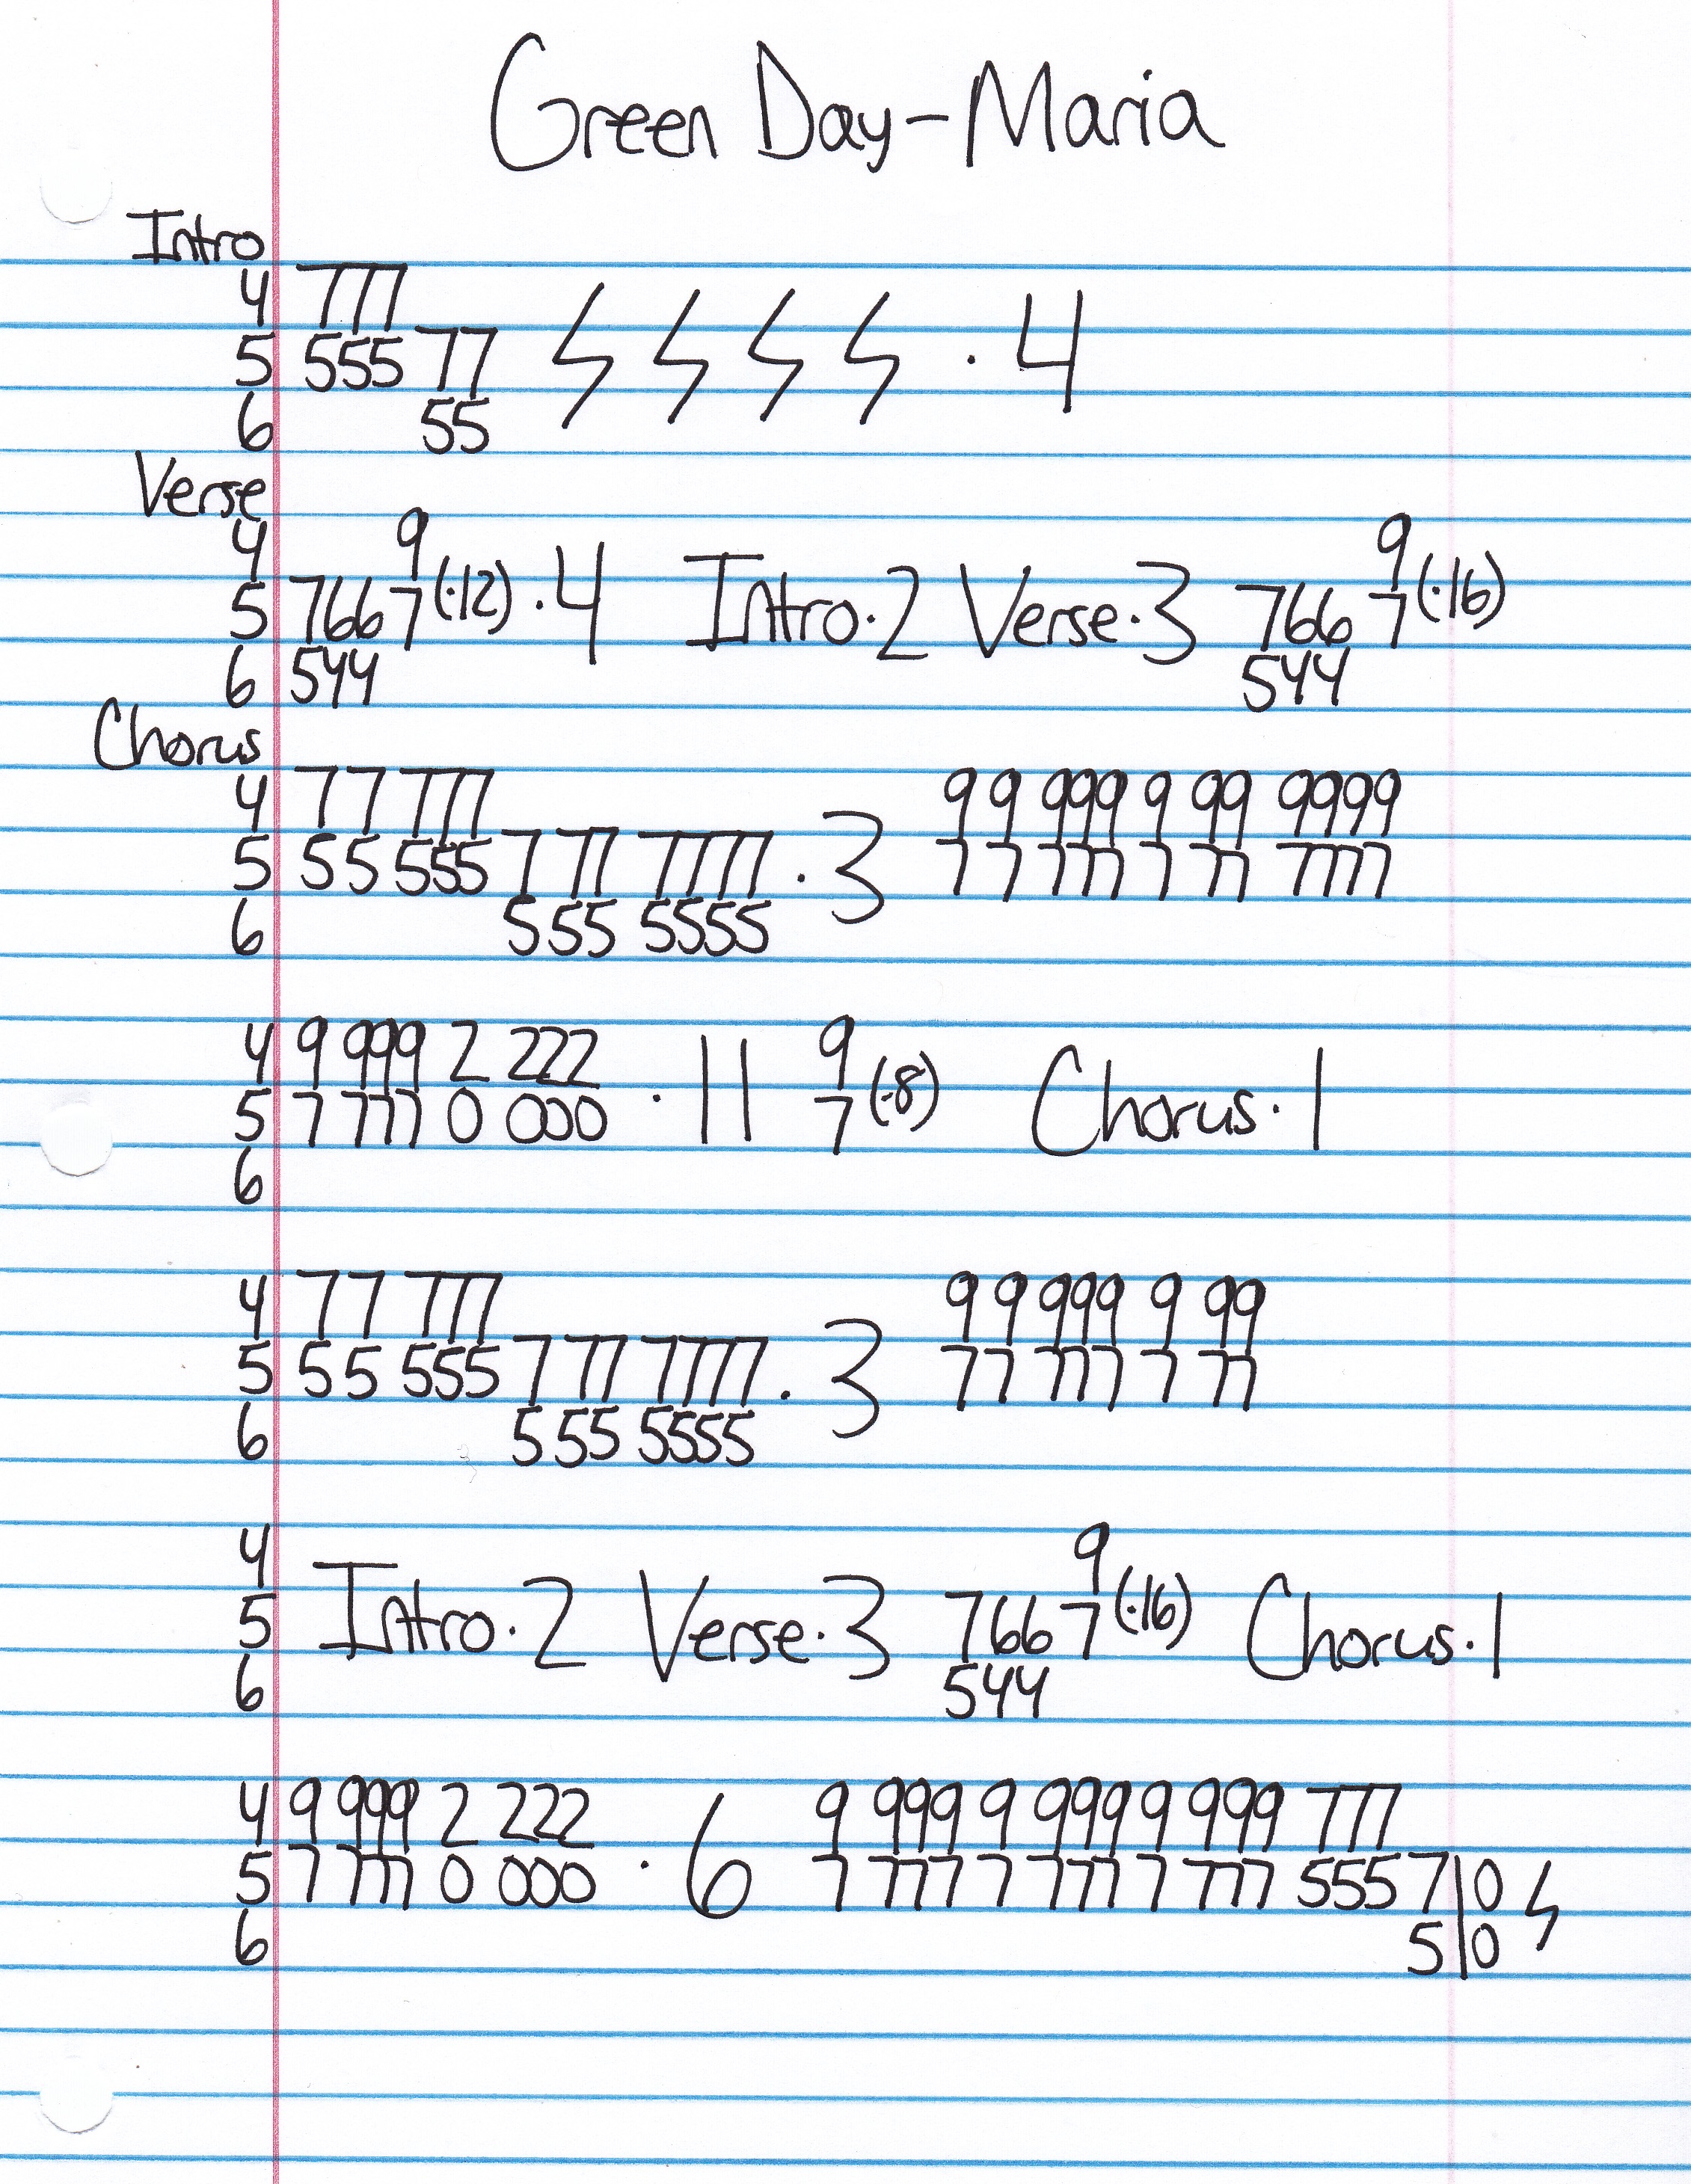 Green Day - Maria
Intro
4 777
5 555 77 ϟ ϟ ϟ ϟ · 4
6 55
Verse
4 9 9
5 766 7 (·12) · 4 Intro · 2 Verse · 3 766 7 (·16)
6 544 544
Chorus
4 7 7 777 9 9 999 9 99 9999
5 5 5 555 7 77 7777 · 3 7 7 777 7 77 7777
6 5 55 5555
4 9 999 2 222 9
5 7 777 0 000 · 11 7 (·8) Chorus · 1
6
4 7 7 777 9 9 999 9 99
5 5 5 555 7 77 7777 · 3 7 7 777 7 77
6 5 55 5555
4 9
5 Intro · 2 Verse · 3 766 7 (·16) Chorus · 1
6 544
4 9 999 2 222 9 999 9 999 9 999 777
5 7 777 0 000 · 6 7 777 7 777 7 777 555 7|0 ϟ
6 5|0